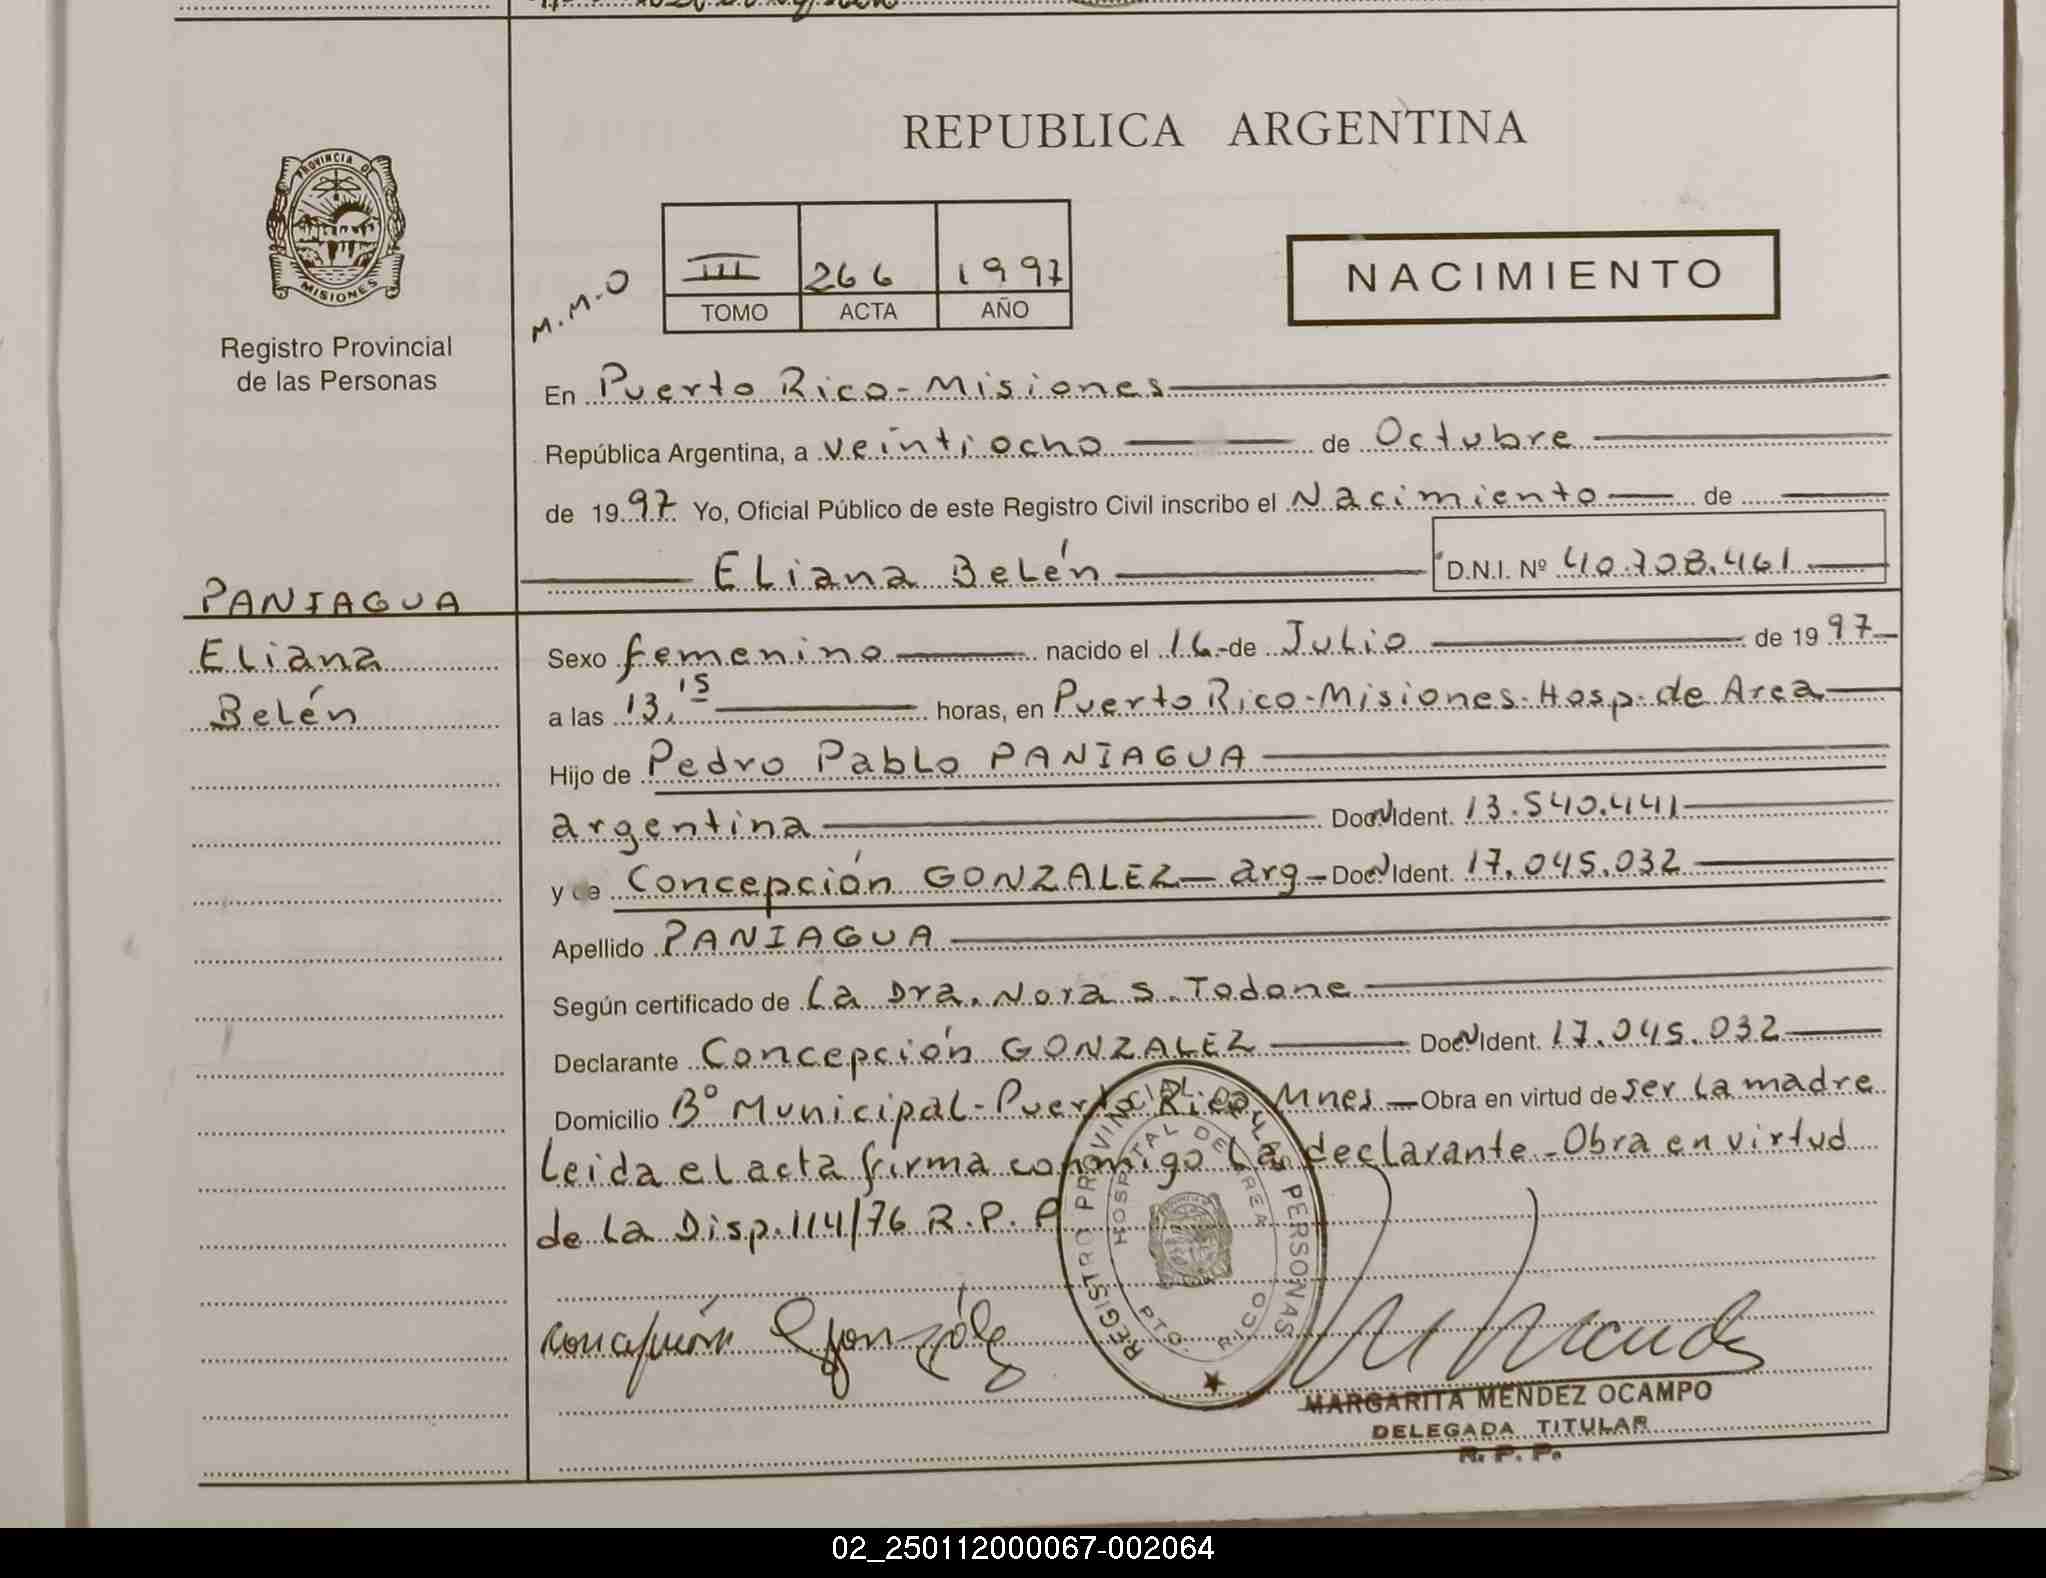 REPUBLICA ARGENTINA
PROVINCIA DE
MISIONES
Registro Provincial
de las Personas
M.M.O
III 266 1997
TOMO ACTA AÑO
NACIMIENTO
En Puerto Rico-Misiones
República Argentina, a veintiocho de Octubre
de 1997 Yo, Oficial Público de este Registro Civil inscribo el Nacimiento de
Eliana Belén D.N.I. Nº 40.708.461
PANIAGUA
Eliana
Belén
Sexo femenino nacido el 16 de Julio de 1997
a las 13,15 horas, en Puerto Rico-Misiones-Hosp. de Area
Hijo de Pedro Pablo PANIAGUA
argentina Doc. N Ident. 13.540.441
y de Concepción GONZALEZ - arg - Doc. N Ident. 17.045.032
Apellido PANIAGUA
Según certificado de La Dra. Nora S. Todone
Declarante Concepción GONZALEZ Doc. N Ident. 17.045.032
Domicilio Bº Municipal-Puerto Rico, Mnes - Obra en virtud de ser La madre
Leida el acta firma conmigo La declarante - Obra en virtud
de La Disp. 114/76 R.P.P
REGISTRO PROVINCIAL DE LAS PERSONAS
HOSPITAL DE AREA
PTO. RICO
Concepción González
M Mende
MARGARITA MENDEZ OCAMPO
DELEGADA TITULAR
R. P. P.
02_250112000067-002064